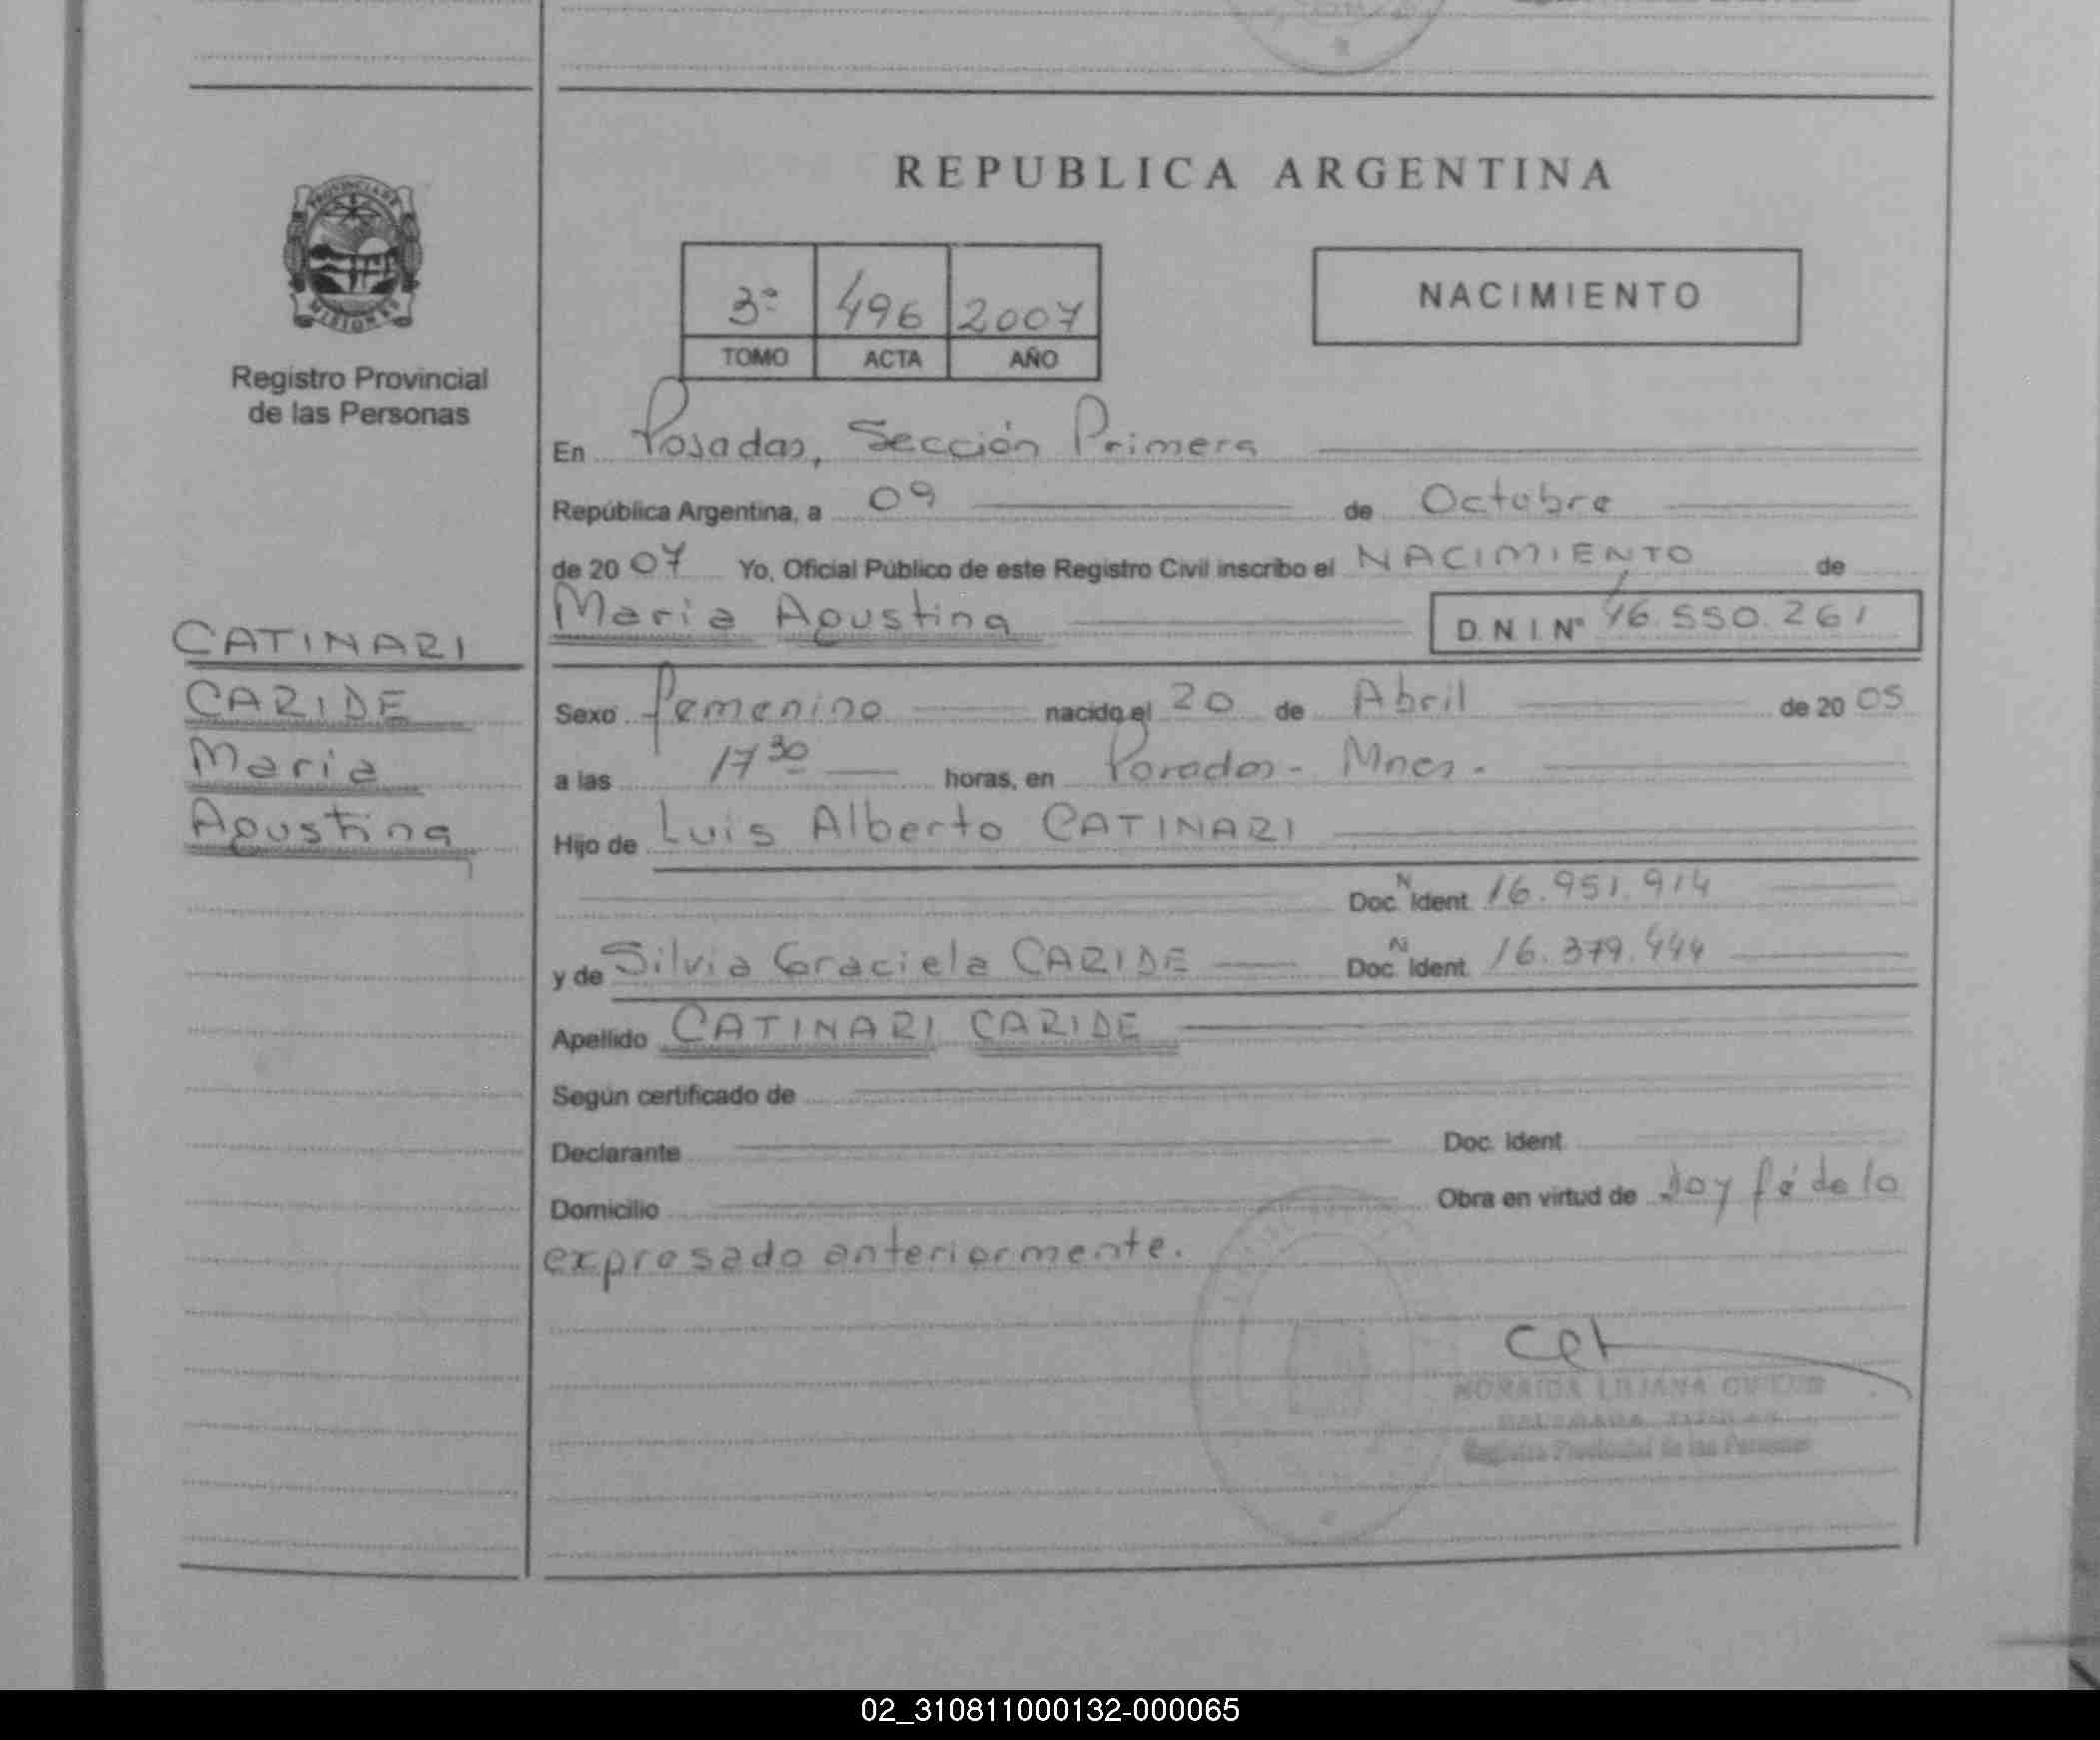 REPUBLICA ARGENTINA
PROVINCIA DE
MISIONES
Registro Provincial
de las Personas
3º 496 2007
TOMO ACTA AÑO
NACIMIENTO
En Posadas, Sección Primera
República Argentina, a 09 de Octubre
de 2007 Yo, Oficial Público de este Registro Civil inscribo el NACIMIENTO de
Maria Agustina D.N.I. Nº 46.550.261
CATINARI
CARIDE
Maria
Agustina
Sexo femenino nacido el 20 de Abril de 2005
a las 17 30 horas, en Posadas - Mnes.
Hijo de Luis Alberto CATINARI
Doc. N Ident. 16.951.914
y de Silvia Graciela CARIDE Doc. N Ident. 16.379.444
Apellido CATINARI CARIDE
Según certificado de
Declarante Doc. Ident.
Domicilio Obra en virtud de Doy fé de lo
expresado anteriormente.
LILIANA
Registro Provincial de las Personas
02_310811000132-000065